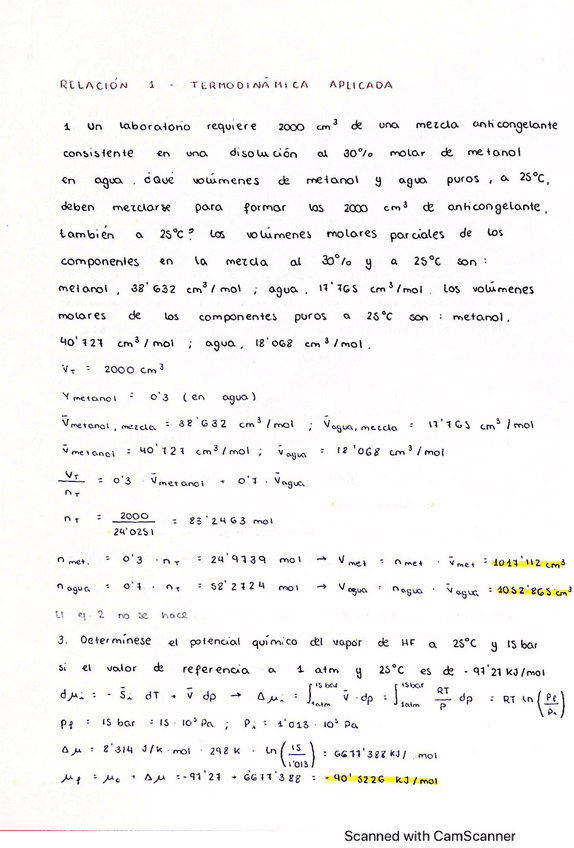 RELACIÓN 1 - TERMODINÁMICA APLICADA
1 Un laboratorio requiere 2000 cm³ de una mezcla anticongelante
consistente en una disolución al 30% molar de metanol
en agua. ¿Qué volúmenes de metanol y agua puros, a 25°C,
deben mezclarse para formar los 2000 cm³ de anticongelante,
también a 25°C? Los volúmenes molares parciales de los
componentes en la mezcla al 30% y a 25°C son:
metanol, 38'632 cm³/mol; agua, 17'765 cm³/mol. Los volúmenes
molares de los componentes puros a 25°C son: metanol,
40'727 cm³/mol; agua, 18'068 cm³/mol.
V_T = 2000 cm³
Y metanol = 0'3 (en agua)
V̄ metanol, mezcla = 38'632 cm³/mol ; V̄ agua, mezcla = 17'765 cm³/mol
V̄ metanol = 40'727 cm³/mol ; V̄ agua = 18'068 cm³/mol
V_T / n_T = 0'3 · V̄ metanol + 0'7 · V̄ agua
n_T = 2000 / 24'0251 = 83'2463 mol
n met. = 0'3 · n_T = 24'9739 mol → V met = n met · v̄ met = 1017'112 cm³
n agua = 0'7 · n_T = 58'2724 mol → V agua = n agua · V̄ agua = 1052'865 cm³
El ej. 2 no se hace
3. Determínese el potencial químico del vapor de HF a 25°C y 15 bar
si el valor de referencia a 1 atm y 25°C es de -97'27 kJ/mol
dμi = - S̄i dT + V̄ dp → Δμi = ∫_{1atm}^{15bar} V̄ · dp = ∫_{1atm}^{15bar} RT/P dp = RT ln(Pf/Pi)
Pf = 15 bar = 15 · 10⁵ Pa ; Pi = 1'013 · 10⁵ Pa
Δμ = 8'314 J/K · mol · 298 K · ln(15/1'013) = 6677'388 kJ/mol
μf = μ0 + Δμ = -97'27 + 6677'388 = -90'5226 kJ/mol
Scanned with CamScanner